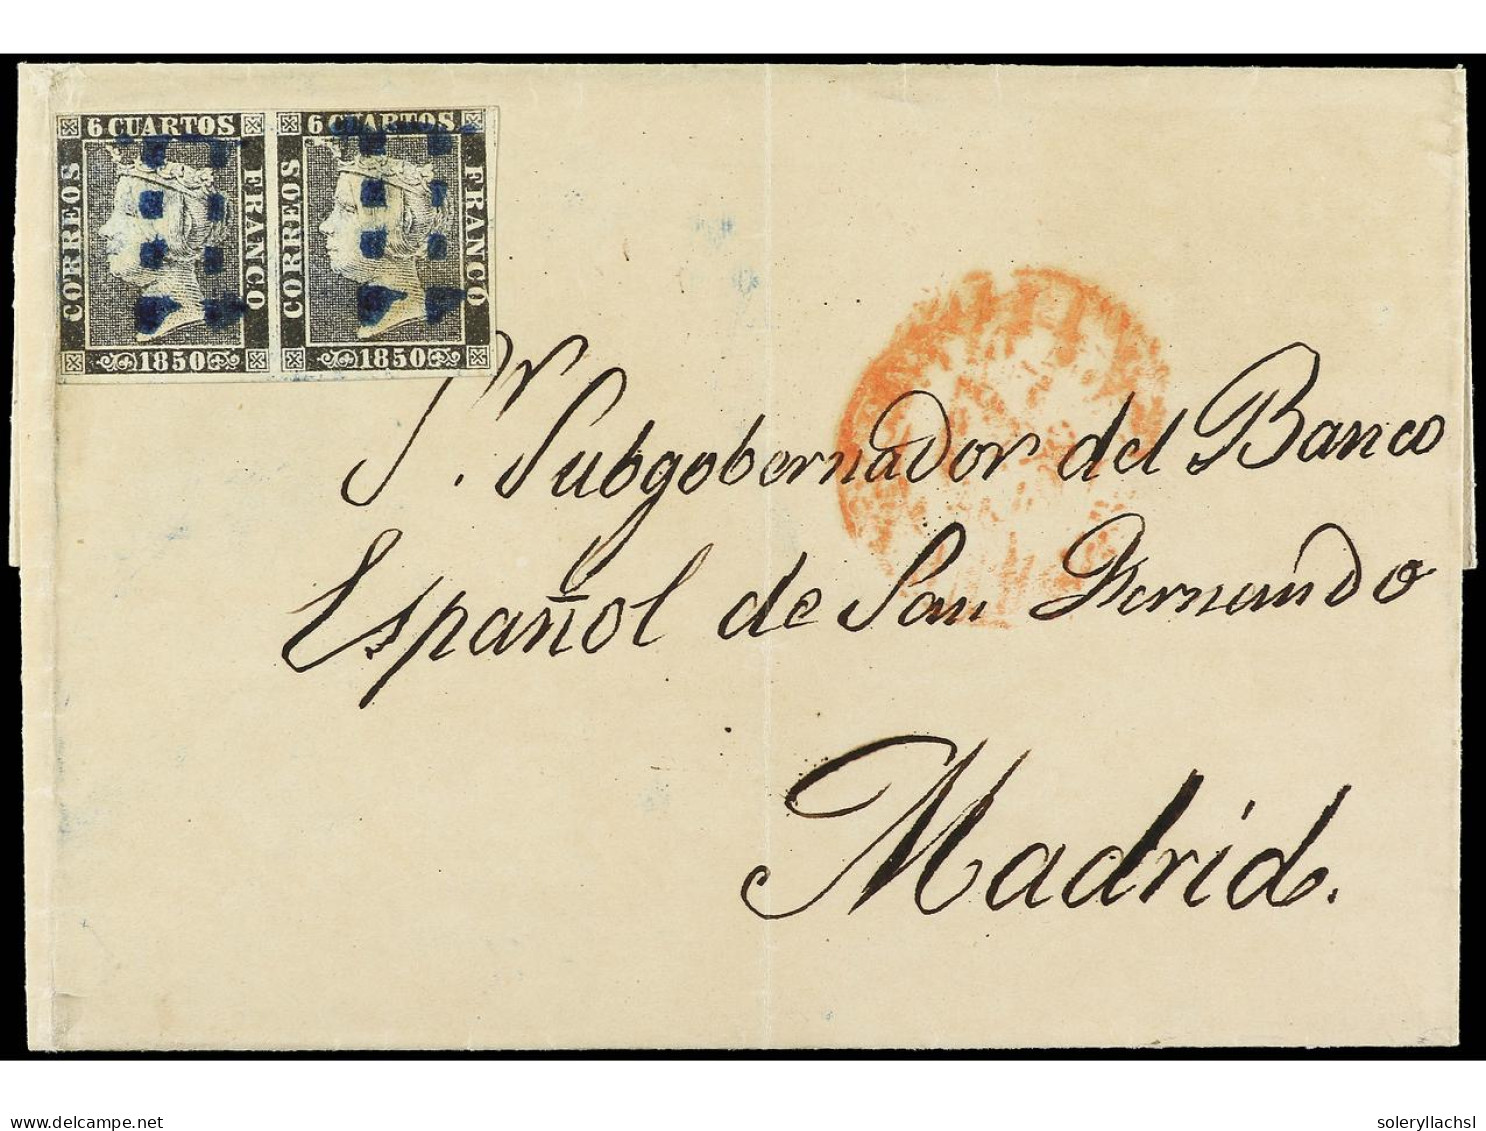 6 CUARTOS 6 CUARTOS
CORREOS FRANCO CORREOS FRANCO
1850 1850
Sr. Subgobernador del Banco
Español de San Fernando
Madrid.
delcampe.net
soleryllachsl